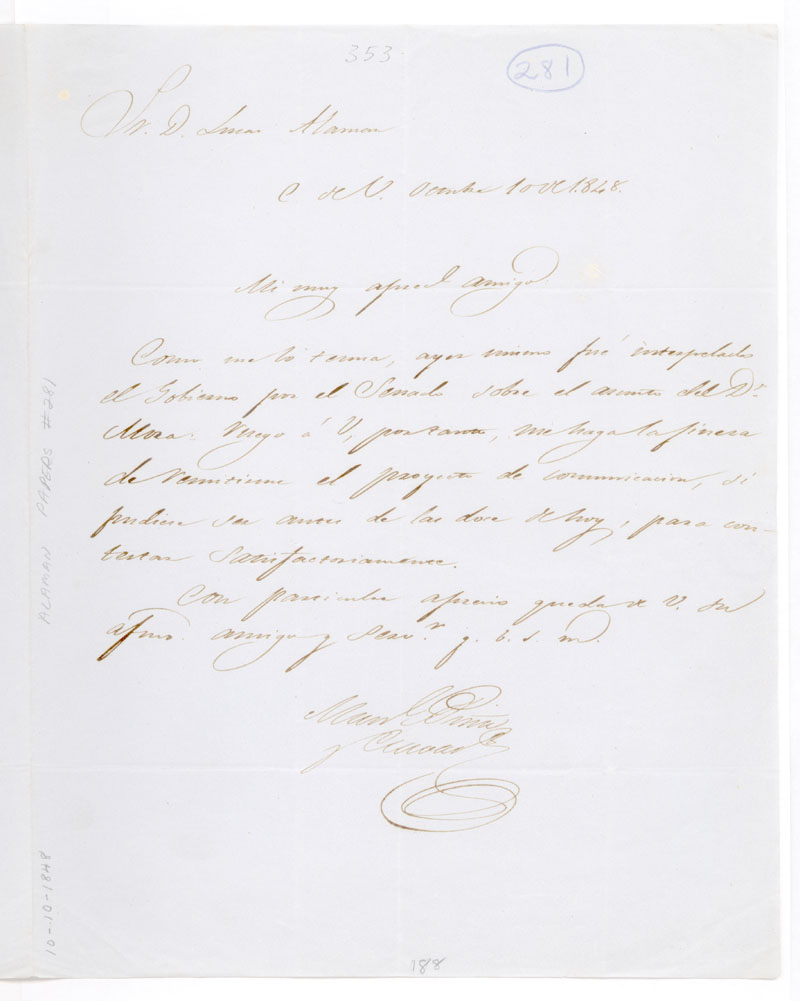 353
281
Sr. D. Lucas Alaman
C. de V. Octubre 10 de 1848.
Mi muy apreci. amigo
Como me lo temia, ayer mismo fué interpelado
el Gobierno por el Senado sobre el asunto del Dr.
Mora: Ruego á V, por tanto, me haga la fineza
de remitirme el proyecto de comunicacion, si
pudiese ser antes de las doce de hoy, para con-
testar satisfactoriamente.
Con particular aprecio queda de V. su
afmo. amigo y serv.r q. b. s. m.
Man.l Piña
y Cuevas
ALAMAN PAPERS #281
10-10-1848
188